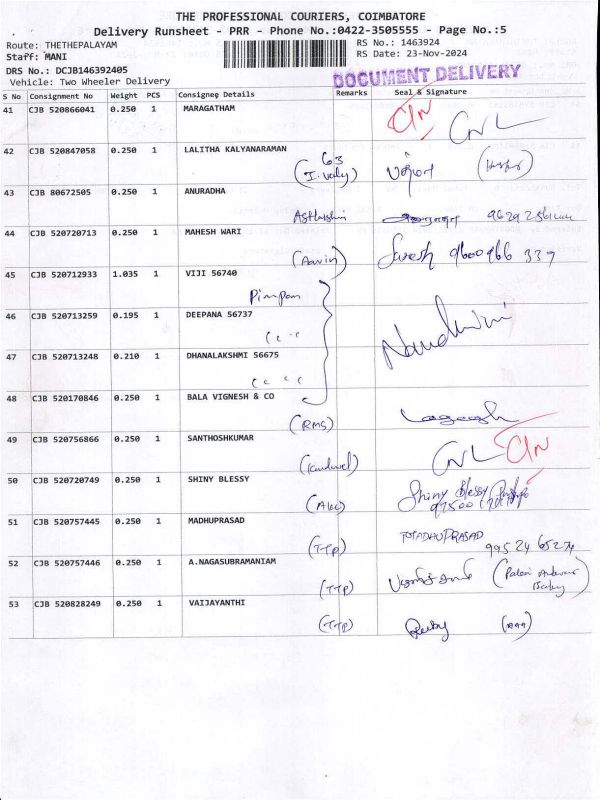 THE PROFESSIONAL COURIERS, COIMBATORE
Delivery Runsheet - PRR - Phone No.:0422-3505555 - Page No.:5
Route: THETHEPALAYAM RS No.: 1463924
Staff: MANI RS Date: 23-Nov-2024
DRS No.: DCJB146392405
Vehicle: Two Wheeler Delivery
DOCUMENT DELIVERY
S No Consignment No Weight PCS Consignee Details Remarks Seal & Signature
41 CJB 520866041 0.250 1 MARAGATHAM
CNL
42 CJB 520847058 0.250 1 LALITHA KALYANARAMAN
63
43 CJB 80672505 0.250 1 ANURADHA
44 CJB 520720713 0.250 1 MAHESH WARI
(Aavin) Suresh 9600966 339
45 CJB 520712933 1.035 1 VIJI 56740
46 CJB 520713259 0.195 1 DEEPANA 56737
47 CJB 520713248 0.210 1 DHANALAKSHMI 56675
48 CJB 520170846 0.250 1 BALA VIGNESH & CO
(RMS)
49 CJB 520756866 0.250 1 SANTHOSHKUMAR
CNL
50 CJB 520720749 0.250 1 SHINY BLESSY
Shiny Blessy
51 CJB 520757445 0.250 1 MADHUPRASAD
(TTP) MADHUPRASAD
52 CJB 520757446 0.250 1 A.NAGASUBRAMANIAM
(TTP)
53 CJB 520828249 0.250 1 VAIJAYANTHI
(TTP) Ruby